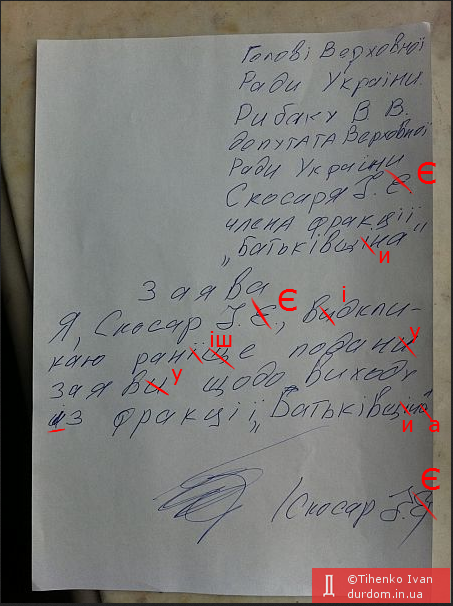 Голові Верховної
Ради України
Рибаку В. В.
депутата Верховної
Ради України
Скосаря І. Е. Є
члена фракції
„Батьківщіна" и
Заява
Я, Скосар І. Е., Є видкли- і
каю раніще іш подани у
заяви у щодо виходу
из фракції „Батьківщіна" и а
/Скосар І. Е Є
Д ©Tihenko Ivan
durdom.in.ua